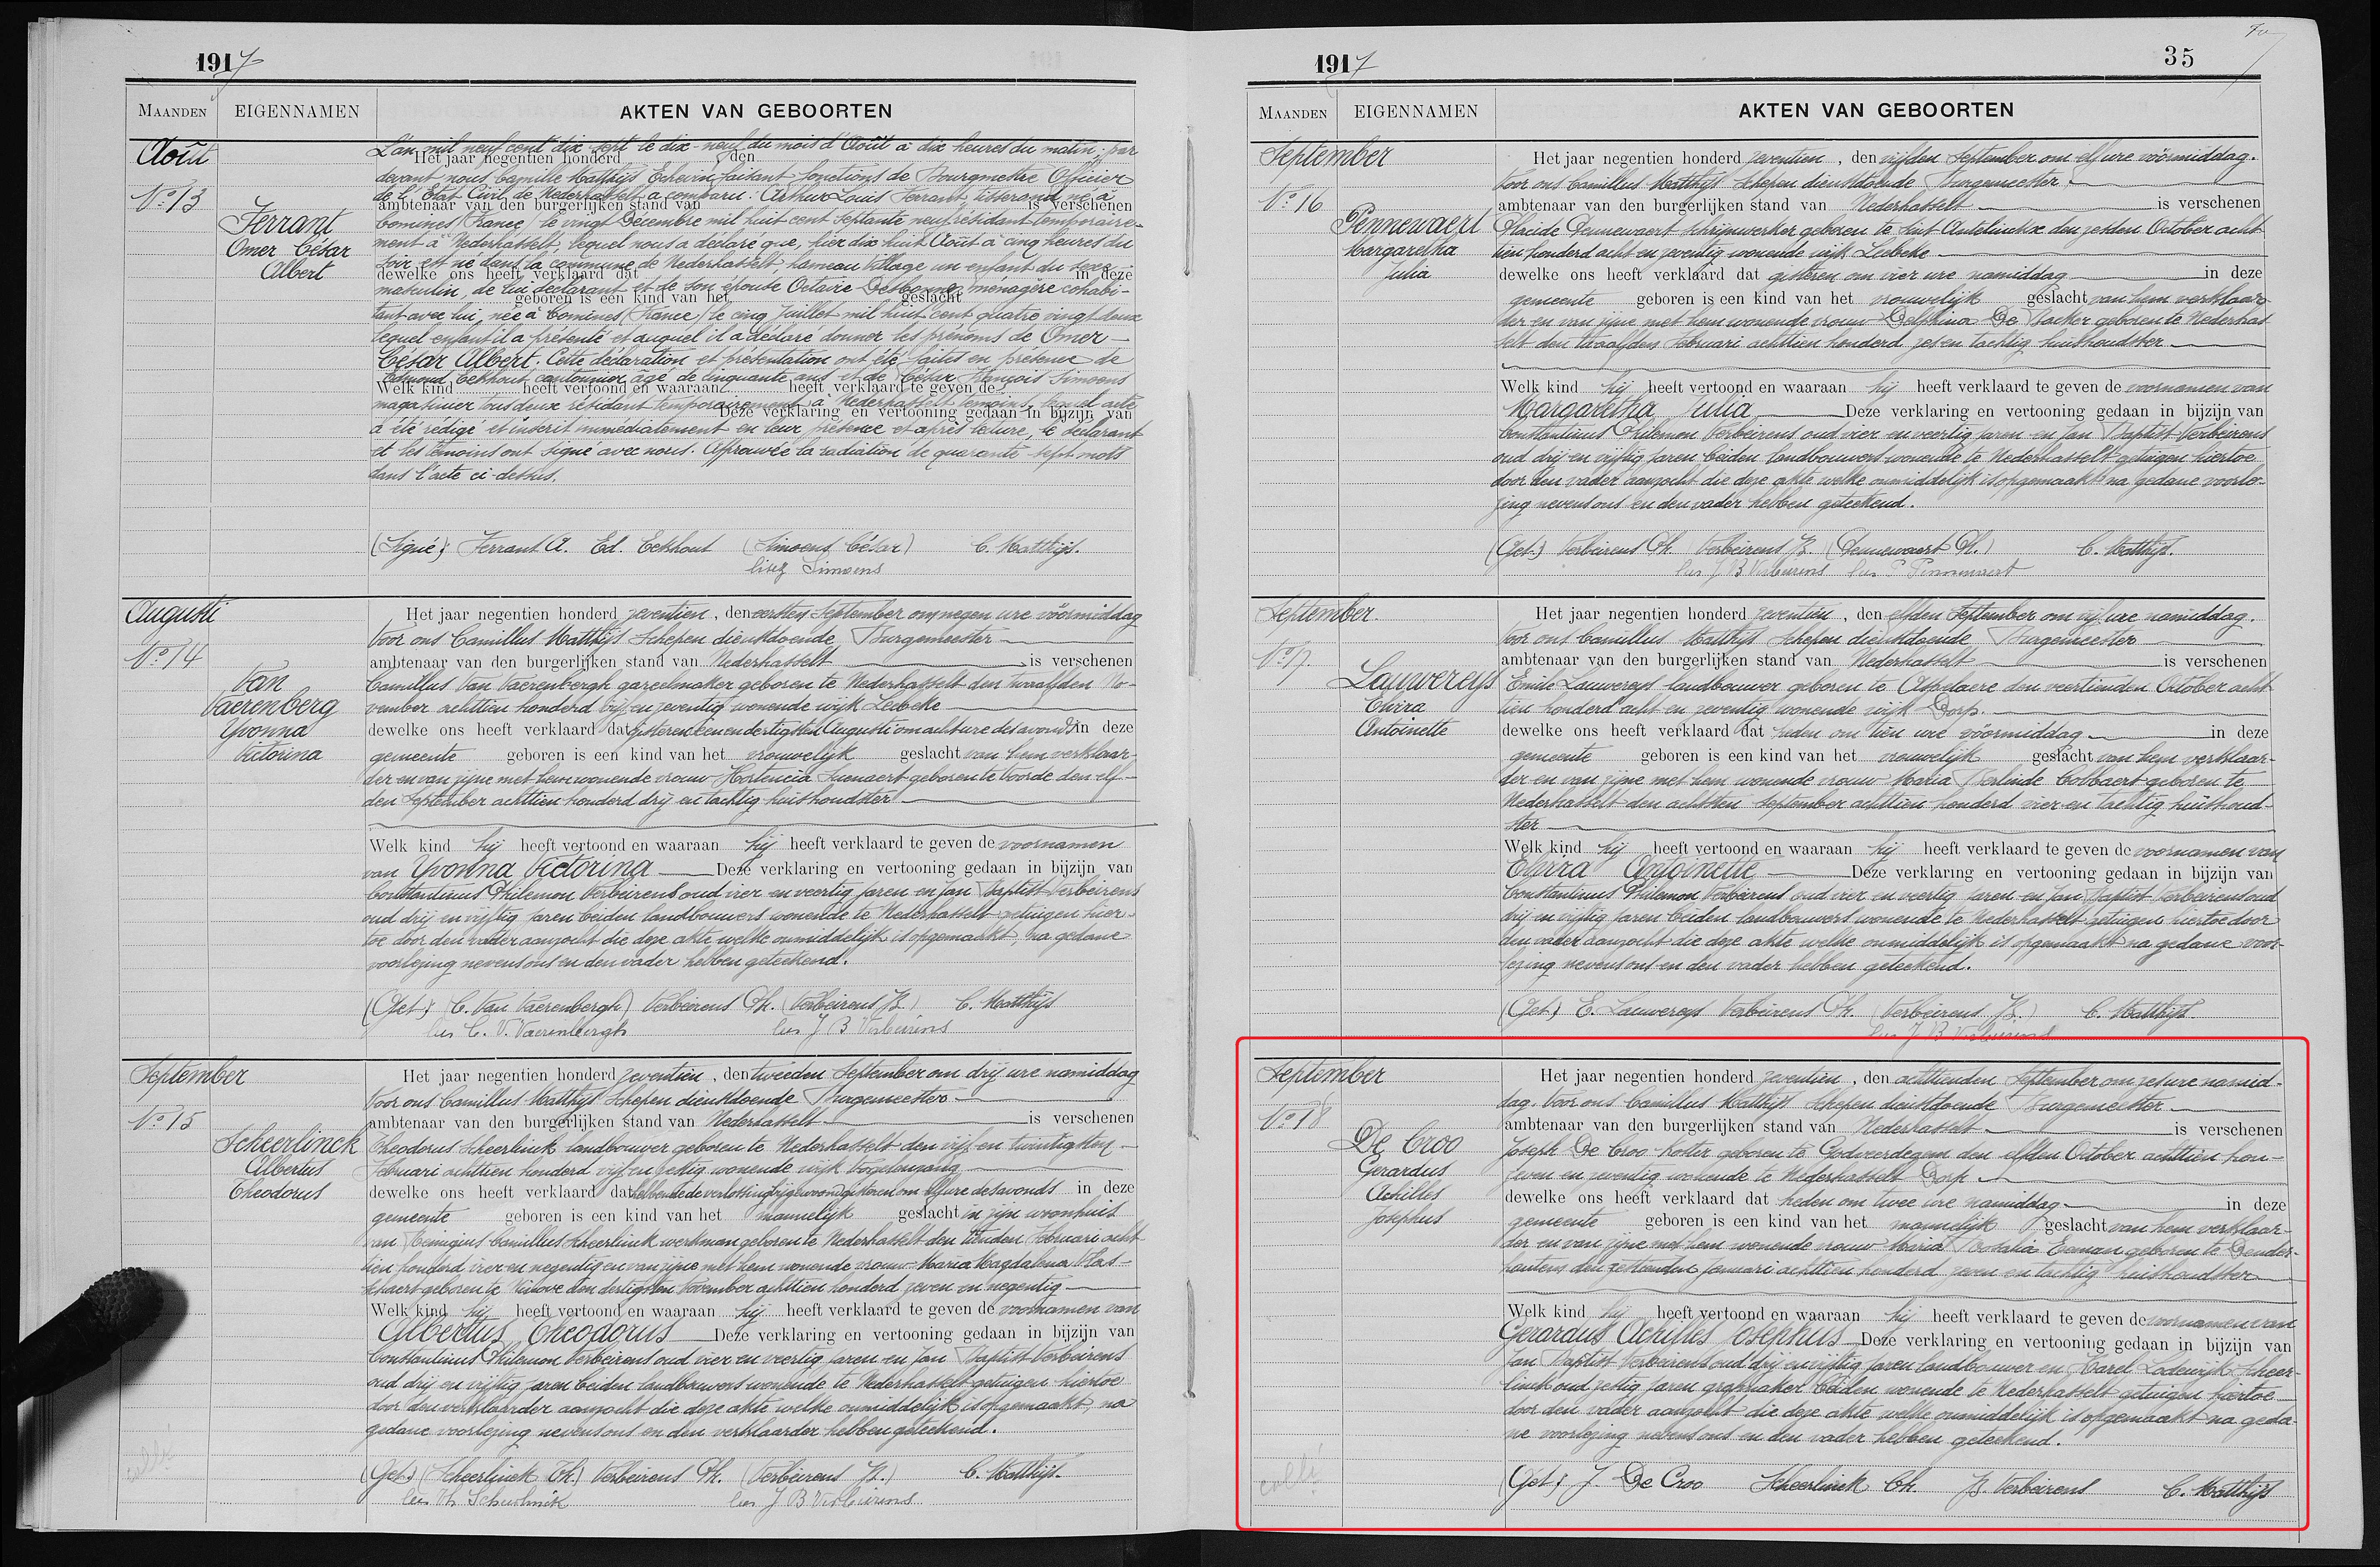 1917
MAANDEN EIGENNAMEN AKTEN VAN GEBOORTEN
Août
N° 13
Ferrant
Omer César
Albert
L'an mil neuf cent dix-sept le dix-neuf du mois d'Août à dix heures du matin par
Het jaar negentien honderd , den
devant nous Camille Matthijs Echevin faisant fonctions de Bourgmestre Officier
de l'Etat Civil de Nederhasselt a comparu: Arthur Louis Ferrant tisserand né à
ambtenaar van den burgerlijken stand van is verschenen
Comines (France) le vingt Décembre mil huit cent septante neuf résidant temporaire-
ment à Nederhasselt, lequel nous a déclaré que, hier dix huit Août à cinq heures du
soir est né dans la commune de Nederhasselt, hameau Village un enfant du sexe
dewelke ons heeft verklaard dat in deze
masculin, de lui déclarant et de son épouse Octavie ménagère cohabi-
geboren is een kind van het geslacht
tant avec lui, née à Comines (France) le cinq Juillet mil huit cent quatre vingt deux
lequel enfant il a présenté et auquel il a déclaré donner les prénoms de Omer
César Albert. Cette déclaration et présentation ont été faites en présence de
Edmond Eekhout, cantonnier, âgé de cinquante ans et de César François Simoens
Welk kind heeft vertoond en waaraan heeft verklaard te geven de
magasinier tous deux résidant temporairement à Nederhasselt témoins, lequel acte
Deze verklaring en vertooning gedaan in bijzijn van
a été rédigé et inscrit immédiatement en leur présence et après lecture, le déclarant
et les témoins ont signé avec nous. Approuvée la radiation de quarante-sept mots
dans l'acte ci-dessus.
(Signé): Ferrant A. Ed. Eekhout (Simoens César) C. Matthijs.
lisez Simoens
Augusti
N° 14
Van
Vaerenberg
Yvonna
Victorina
Het jaar negentien honderd zeventien, den eersten September om negen ure vóórmiddag
Voor ons Camillus Matthijs Schepen dienstdoende Burgemeester
ambtenaar van den burgerlijken stand van Nederhasselt is verschenen
Camillus Van Vaerenbergh gareelmaker geboren te Nederhasselt den twaalfden No-
vember achttien honderd vijf en zeventig wonende wijk Leibeke
dewelke ons heeft verklaard dat gisteren een en dertigsten Augusti om acht ure des avonds in deze
gemeente geboren is een kind van het vrouwelijk geslacht van hem verklaar-
der en van zijne met hem wonende vrouw Hortencia geboren te Voorde den elf-
den September achttien honderd drij en tachtig huishoudster
Welk kind hij heeft vertoond en waaraan hij heeft verklaard te geven de voornamen
van Yvonna Victorina Deze verklaring en vertooning gedaan in bijzijn van
Constantinus Philemon Verbeirens oud vier en veertig jaren en Jan Baptist Verbeirens
oud drij en vijftig jaren beiden landbouwers wonende te Nederhasselt getuigen hier-
toe door den vader aanzocht die deze akte welke onmiddelijk is opgemaakt, na gedane
voorlezing nevens ons en den vader hebben geteekend.
(Get.) (C. Van Vaerenbergh) Verbeirens Ph. (Verbeirens B.) C. Matthijs
lees C. V. Vaerenbergh lees J B Verbeirens
September
N° 15
Scheerlinck
Albertus
Theodorus
Het jaar negentien honderd zeventien, den tweeden September om drij ure namiddag
Voor ons Camillus Matthijs Schepen dienstdoende Burgemeester
ambtenaar van den burgerlijken stand van Nederhasselt is verschenen
Theodorus Scheerlinck landbouwer geboren te Nederhasselt den vijf en twintigsten
Februari achttien honderd vijf en zestig wonende wijk Vogelenzang
dewelke ons heeft verklaard dat hebbende de verlossing bijgewoond gisteren om elf ure des avonds in deze
gemeente geboren is een kind van het mannelijk geslacht in zijn woonhuis
van Remigius Camillus Scheerlinck werkman geboren te Nederhasselt den tienden Februari acht
tien honderd vier en negentig en van zijne met hem wonende vrouw Maria Magdalena Vlas-
schaert geboren te Ninove den dertigsten November achttien honderd zeven en negentig
Welk kind hij heeft vertoond en waaraan hij heeft verklaard te geven de voornamen van
Albertus Theodorus Deze verklaring en vertooning gedaan in bijzijn van
Constantinus Philemon Verbeirens oud vier en veertig jaren en Jan Baptist Verbeirens
oud drij en vijftig jaren beiden landbouwers wonende te Nederhasselt getuigen hiertoe
door den verklaarder aanzocht die deze akte welke onmiddelijk is opgemaakt, na
gedane voorlezing nevens ons en den verklaarder hebben geteekend.
(Get.) (Scheerlinck Th.) Verbeirens Ph. (Verbeirens B.) C. Matthijs.
lees Th Scheerlinck lees J B Verbeirens
1917 35
MAANDEN EIGENNAMEN AKTEN VAN GEBOORTEN
September
N° 16
Pennewaert
Margaretha
Julia
Het jaar negentien honderd zeventien, den vijfden September om elf ure vóórmiddag.
Voor ons Camillus Matthijs Schepen dienstdoende Burgemeester
ambtenaar van den burgerlijken stand van Nederhasselt is verschenen
Placide Pennewaert schrijnwerker geboren te Sint Antelinckx den zesden October acht
tien honderd acht en zeventig wonende wijk Leibeke
dewelke ons heeft verklaard dat gisteren om vier ure namiddag in deze
gemeente geboren is een kind van het vrouwelijk geslacht van hem verklaar-
der en van zijne met hem wonende vrouw Delphina De Backer geboren te Nederhas
selt den twaalfden Februari achttien honderd zes en tachtig huishoudster
Welk kind hij heeft vertoond en waaraan hij heeft verklaard te geven de voornamen van
Margaretha Julia Deze verklaring en vertooning gedaan in bijzijn van
Constantinus Philemon Verbeirens oud vier en veertig jaren en Jan Baptist Verbeirens
oud drij en vijftig jaren beiden landbouwers wonende te Nederhasselt getuigen hiertoe
door den vader aanzocht die deze akte welke onmiddelijk is opgemaakt na gedane voorle-
zing nevens ons en den vader hebben geteekend.
(Get.) Verbeirens Ph. (Verbeirens B.) (Pennewaert Pl.) C. Matthijs.
lees J B Verbeirens lees P Pennewaert
September.
N° 17.
Lauwereys
Elvira
Antoinette
Het jaar negentien honderd zeventien, den elfden September om vijf ure namiddag.
Voor ons Camillus Matthijs Schepen dienstdoende Burgemeester
ambtenaar van den burgerlijken stand van Nederhasselt is verschenen
Emile Lauwereys landbouwer geboren te Aspelaere den veertienden October acht
tien honderd acht en zeventig wonende wijk Dorp.
dewelke ons heeft verklaard dat heden om tien ure vóórmiddag in deze
gemeente geboren is een kind van het vrouwelijk geslacht van hem verklaar-
der en van zijne met hem wonende vrouw Maria Berlinde Colbaert geboren te
Nederhasselt den achtsten September achttien honderd vier en tachtig huishoud-
ster
Welk kind hij heeft vertoond en waaraan hij heeft verklaard te geven de voornamen van
Elvira Antoinette Deze verklaring en vertooning gedaan in bijzijn van
Constantinus Philemon Verbeirens oud vier en veertig jaren en Jan Baptist Verbeirens oud
drij en vijftig jaren beiden landbouwers wonende te Nederhasselt getuigen hiertoe door
den vader aanzocht die deze akte welke onmiddelijk is opgemaakt na gedane voor-
lezing nevens ons en den vader hebben geteekend.
(Get.) E. Lauwereys Verbeirens Ph. (Verbeirens B.) C. Matthijs
lees J B Verbeirens
September
N° 18
De Croo
Gerardus
Achilles
Josephus
Het jaar negentien honderd zeventien, den achttienden September om zes ure namid-
dag. Voor ons Camillus Matthijs Schepen dienstdoende Burgemeester
ambtenaar van den burgerlijken stand van Nederhasselt is verschenen
Joseph De Croo koster geboren te Godveerdegem den elfden October achttien hon-
zeven en zeventig wonende te Nederhasselt Dorp
dewelke ons heeft verklaard dat heden om twee ure namiddag in deze
gemeente geboren is een kind van het mannelijk geslacht van hem verklaar-
der en van zijne met hem wonende vrouw Maria Rosalia Eeman geboren te Dender-
houtem den zestienden Januari achttien honderd zeven en tachtig huishoudster
Welk kind hij heeft vertoond en waaraan hij heeft verklaard te geven de voornamen van
Gerardus Achilles Josephus Deze verklaring en vertooning gedaan in bijzijn van
Jan Baptist Verbeirens oud drij en vijftig jaren landbouwer en Karel Lodewijk Scheer-
linck oud zestig jaren beiden wonende te Nederhasselt getuigen hiertoe
door den vader aanzocht die deze akte welke onmiddelijk is opgemaakt na geda-
ne voorlezing nevens ons en den vader hebben geteekend.
(Get.) J. De Croo Scheerlinck Ch. B. Verbeirens C. Matthijs